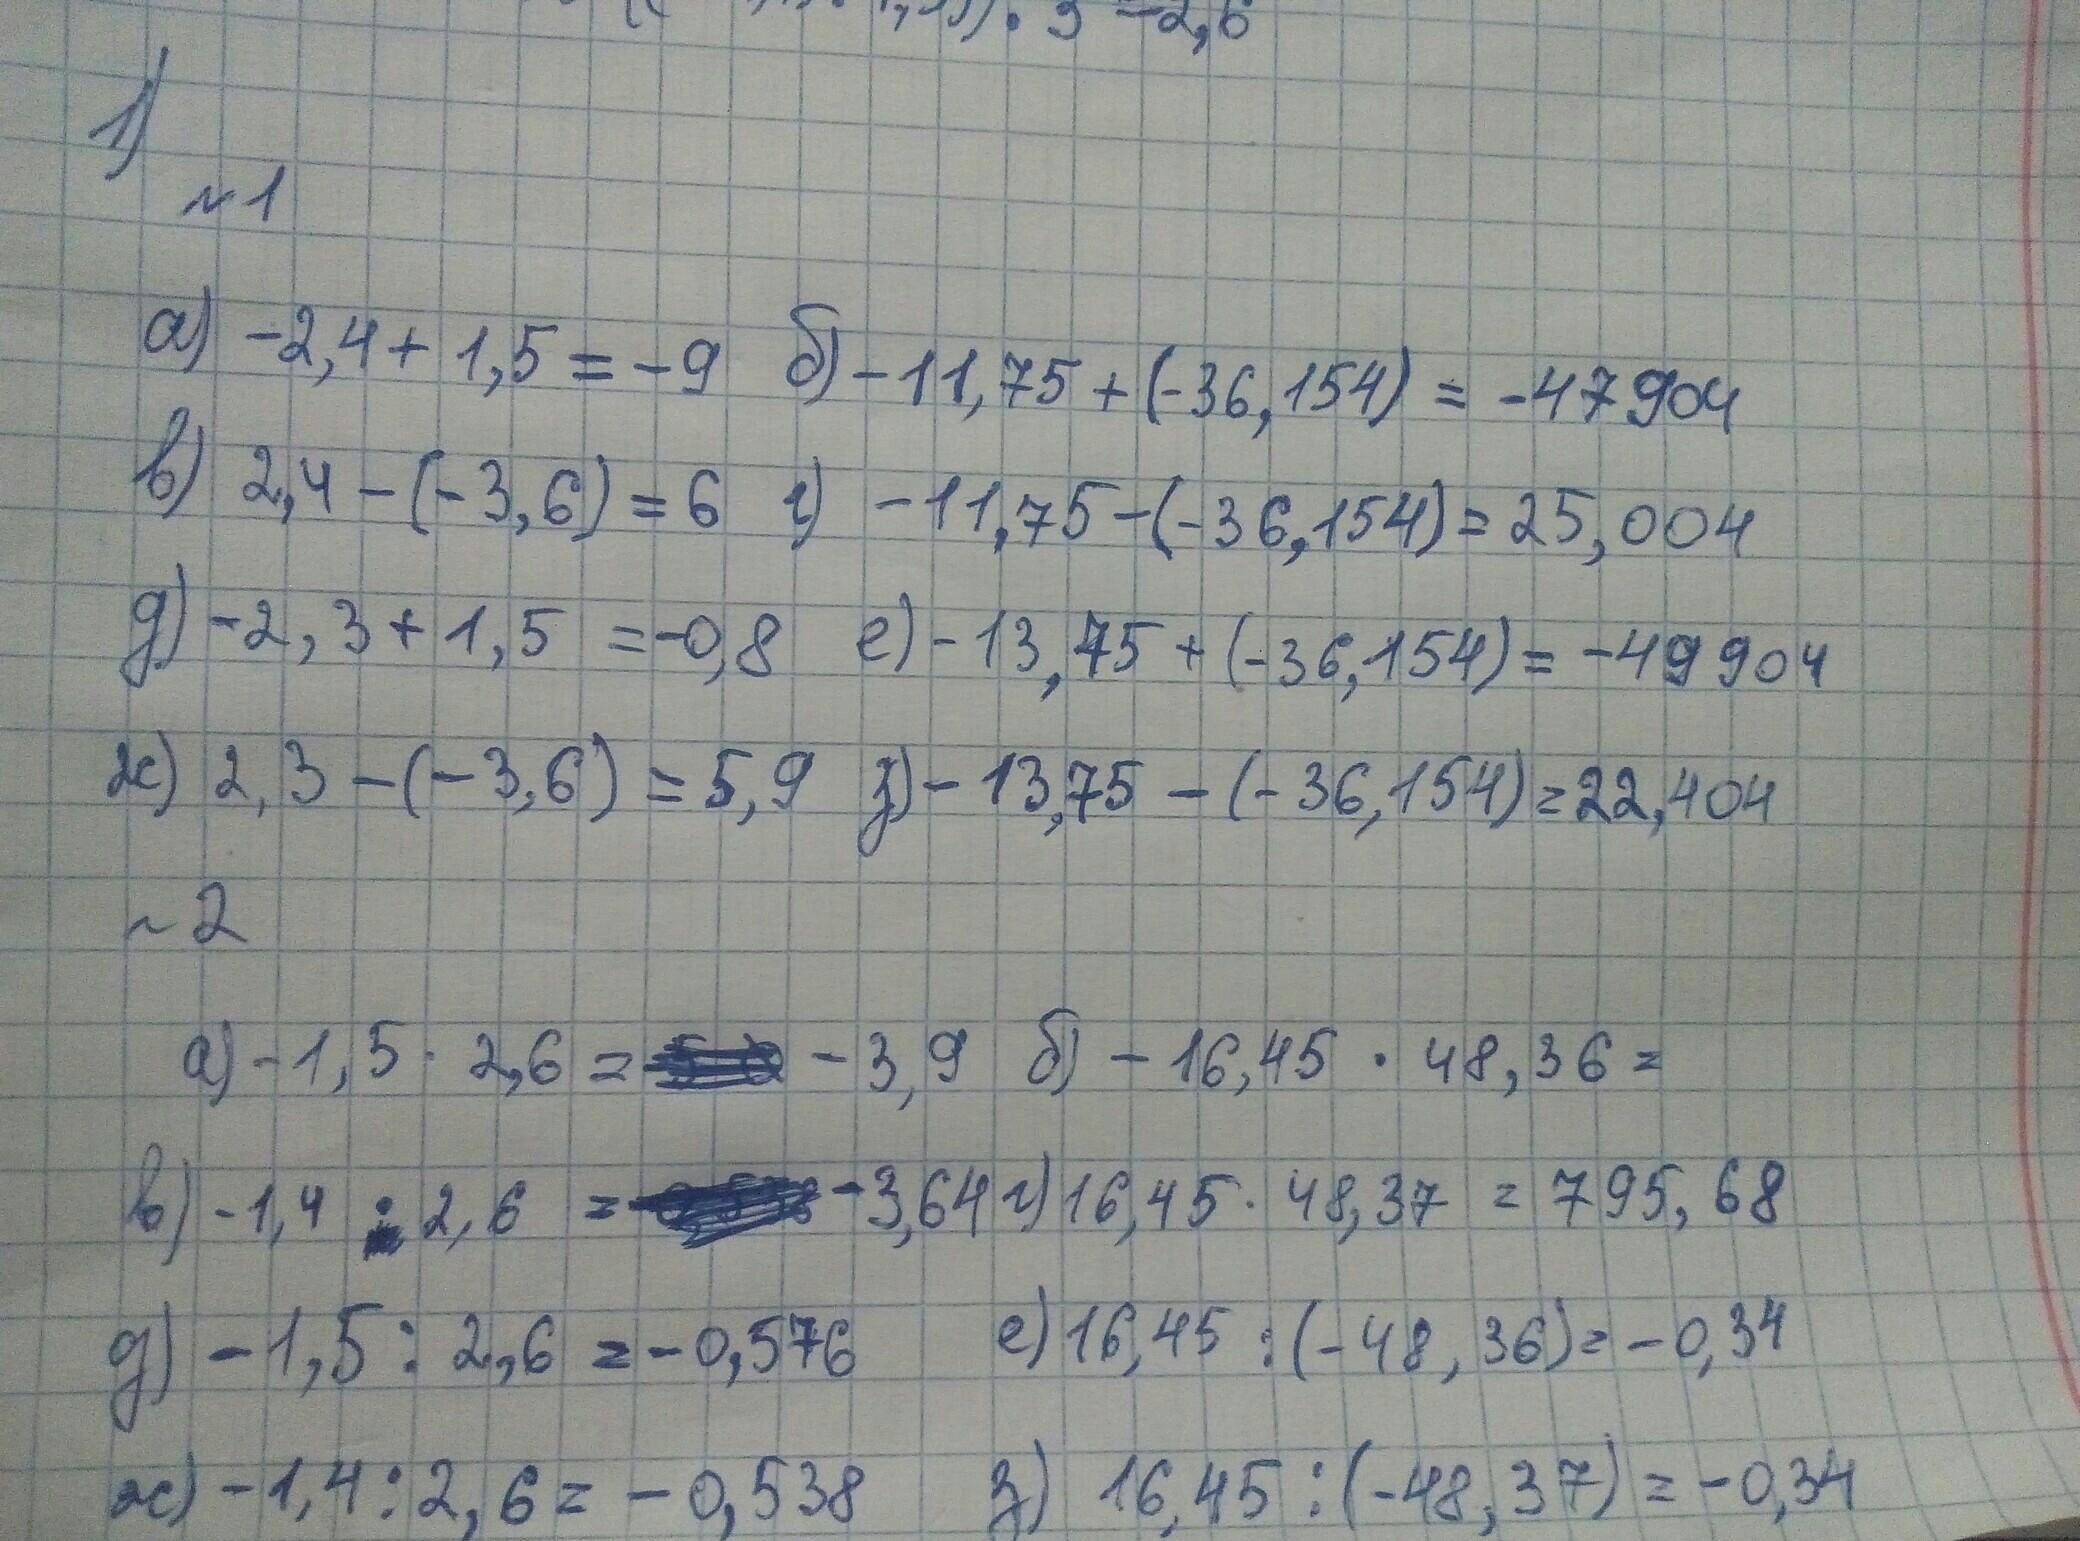 3 = -2,6
1)
№1
а) -2,4 + 1,5 = -9 б) -11,75 + (-36,154) = -47904
в) 2,4 - (-3,6) = 6 г) -11,75 - (-36,154) = 25,004
д) -2,3 + 1,5 = -0,8 е) -13,75 + (-36,154) = -49904
ж) 2,3 - (-3,6) = 5,9 з) -13,75 - (-36,154) = 22,404
№2
а) -1,5 · 2,6 = -3,9 б) -16,45 · 48,36 =
в) -1,4 · 2,6 = -3,64 г) 16,45 · 48,37 = 795,68
д) -1,5 : 2,6 = -0,576 е) 16,45 : (-48,36) = -0,34
ж) -1,4 : 2,6 = -0,538 з) 16,45 : (-48,37) = -0,34